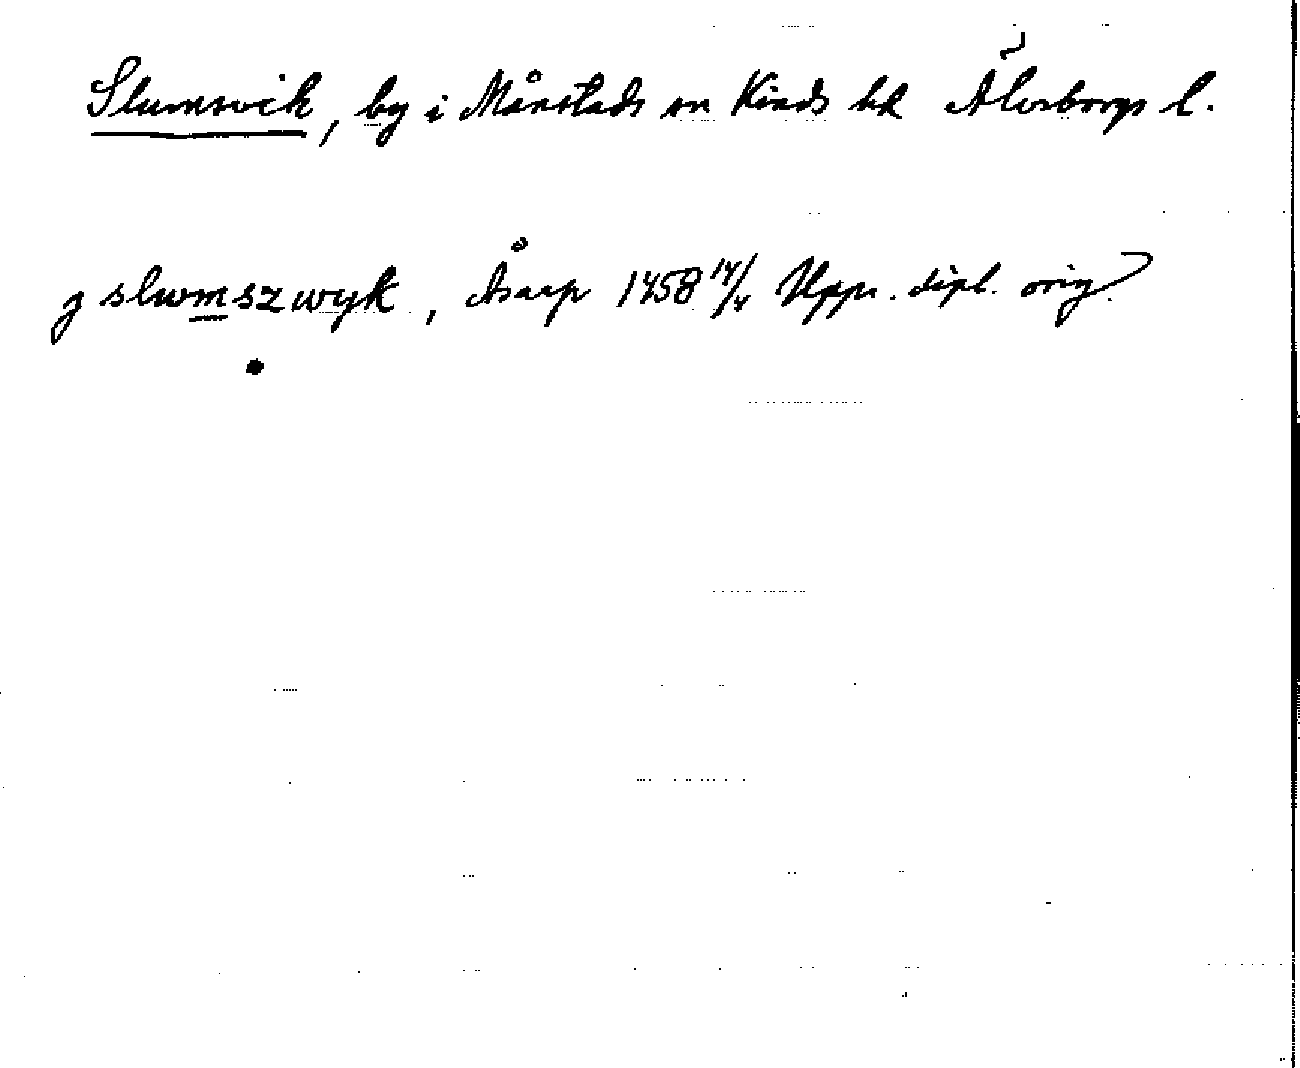 Slumsvik, by i Månstads sn Kinds hd Älvsborgs l.
J slwmszwyk, Åsarp 1458 14/4 Upps. dipl. orig.